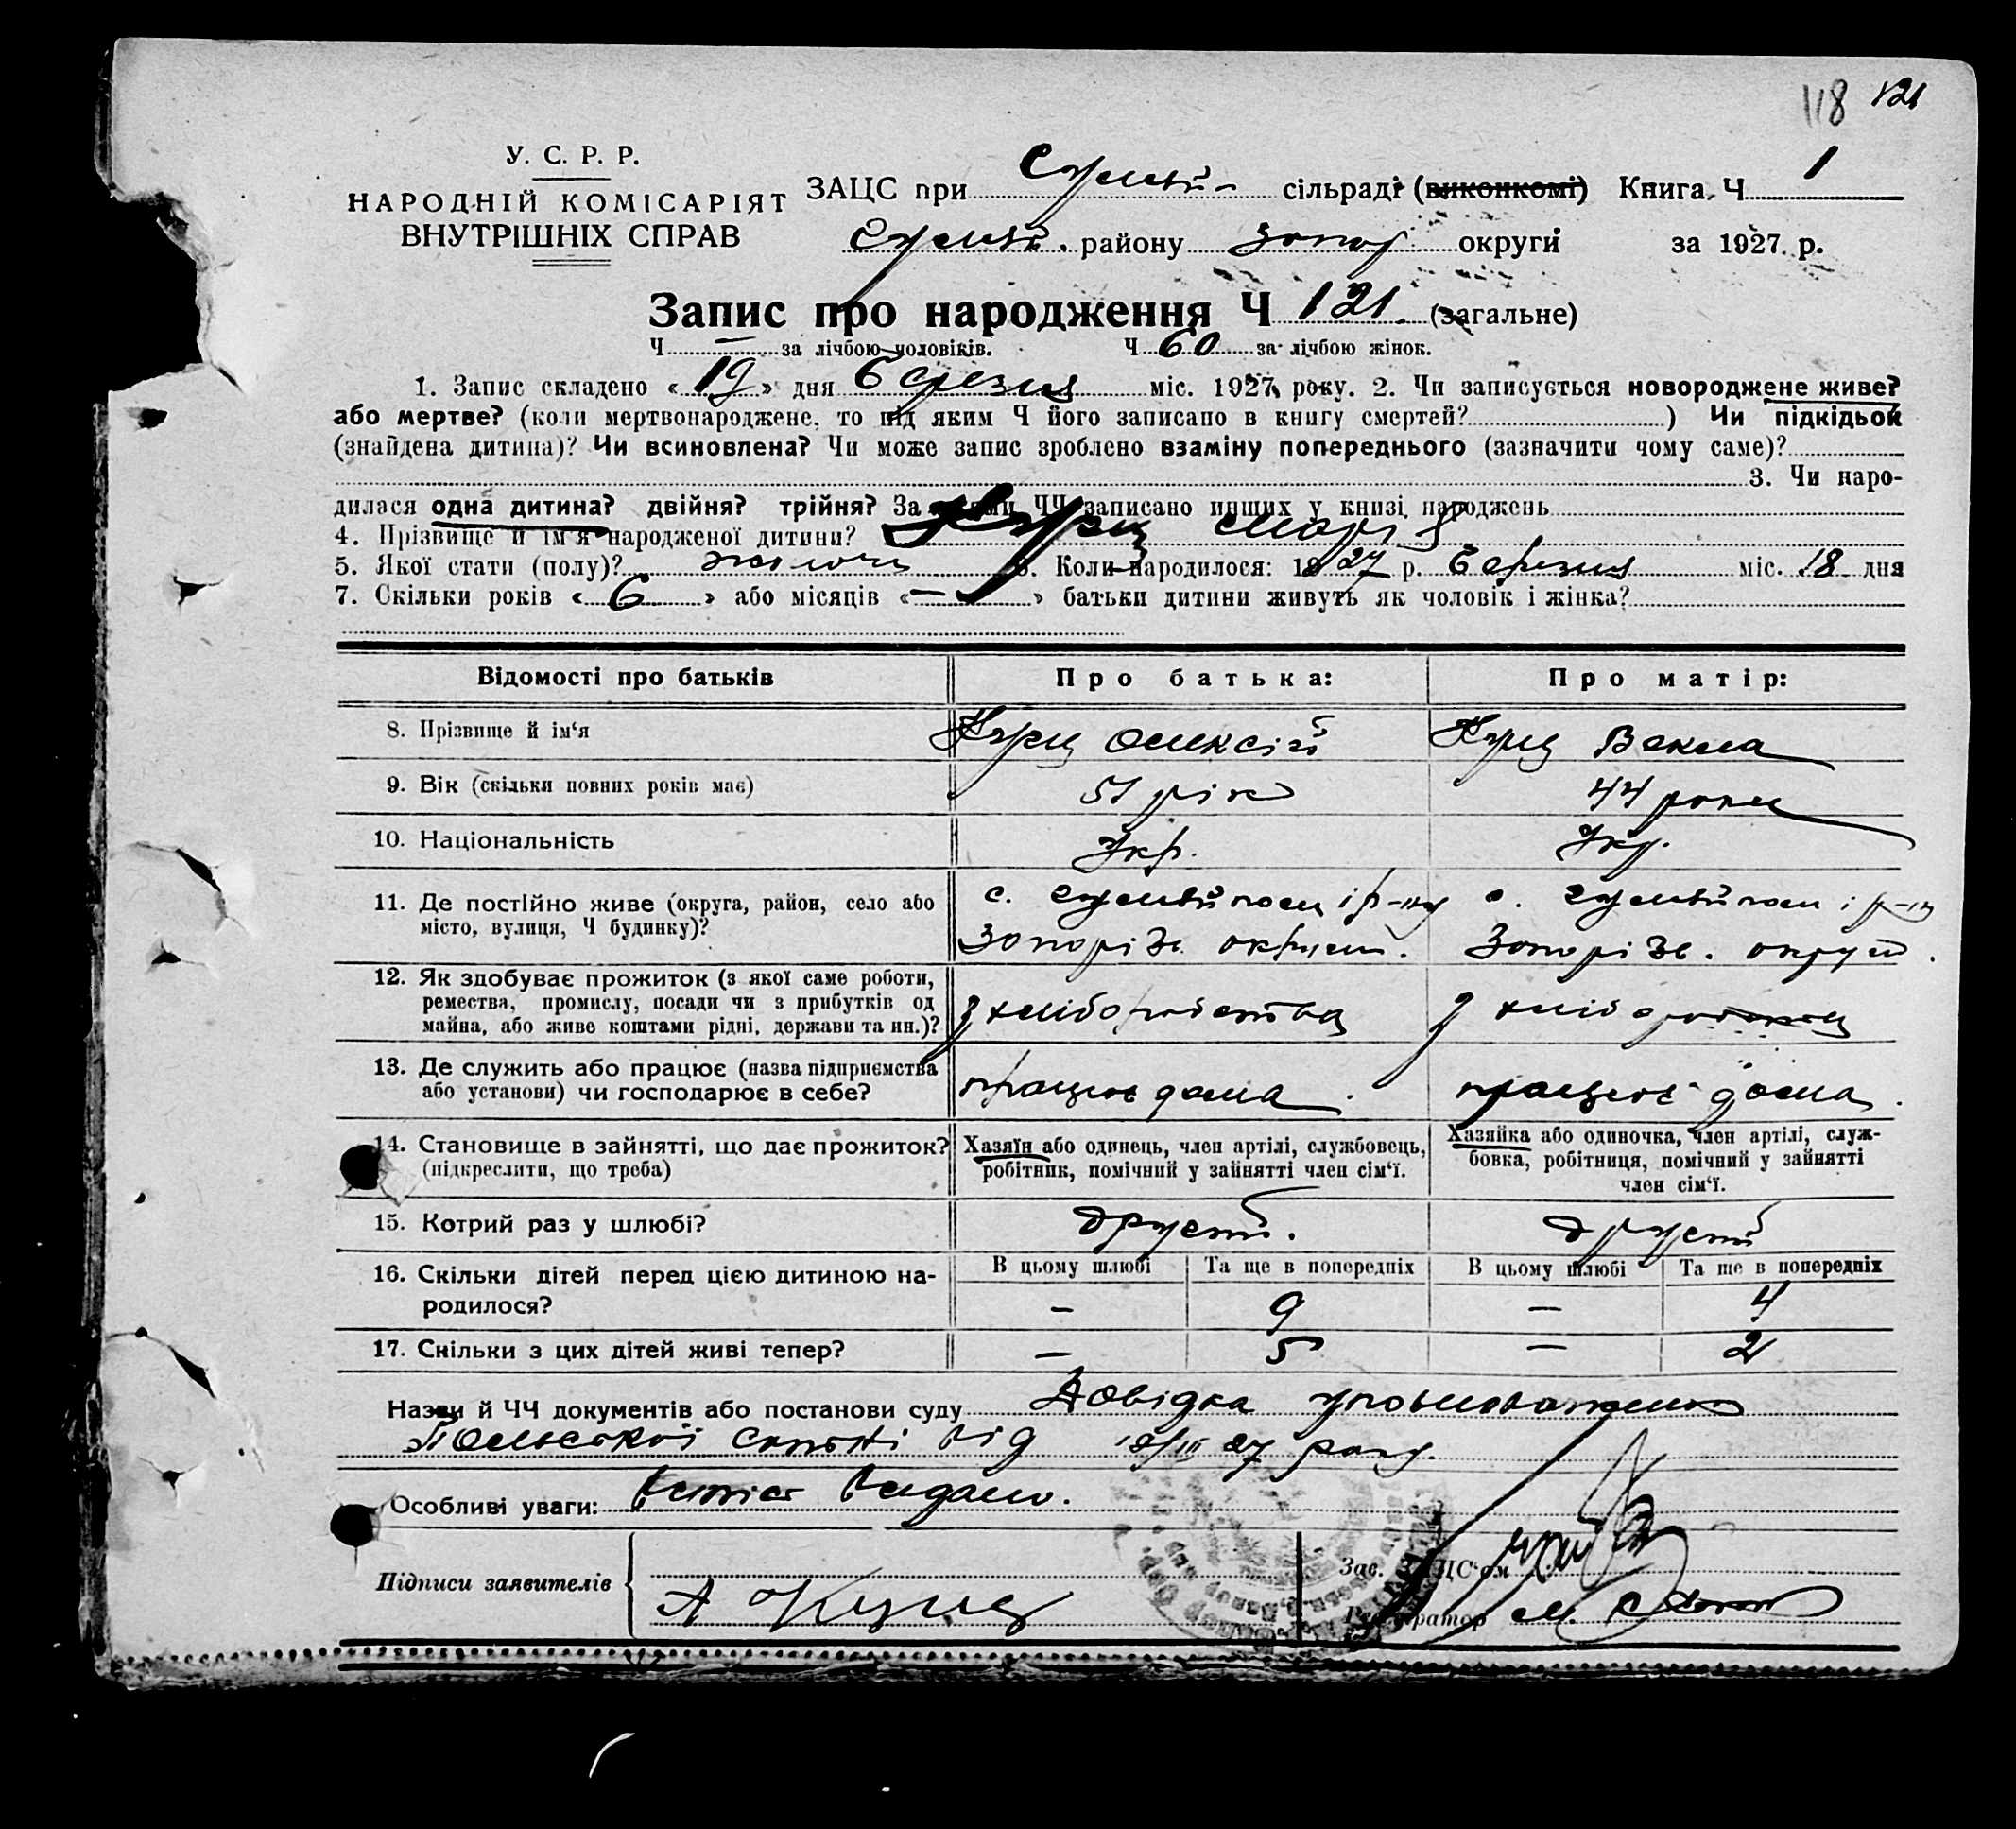 118 121
У. С. Р. Р.
НАРОДНІЙ КОМІСАРІЯТ
ВНУТРІШНІХ СПРАВ
ЗАЦС при сільраді (виконкомі) Книга Ч 1
району Запор округи за 1927 р.
Запис про народження Ч 121. (загальне)
Ч — за лічбою чоловіків. Ч 60 за лічбою жінок.
1. Запис складено «19» дня березня міс. 1927 року. 2. Чи записується новороджене живе?
або мертве? (коли мертвонароджене, то під яким Ч його записано в книгу смертей? ) Чи підкідьок
(знайдена дитина)? Чи всиновлена? Чи може запис зроблено взаміну попереднього (зазначити чому саме)?
3. Чи наро-
дилася одна дитина? двійня? трійня? За якими ЧЧ записано инших у книзі народжень
4. Прізвище й ім'я народженої дитини? Куц
5. Якої стати (полу)? жіночи 6. Коли народилося: 1927 р. березня міс. 18 дня
7. Скільки років «6» або місяців «—» батьки дитини живуть як чоловік і жінка?
Відомості про батьків Про батька: Про матір:
8. Прізвище й ім'я Куц Олексій Куц Векла
9. Вік (скільки повних років має) 51 рік 44 роки
10. Національність Укр. Укр.
11. Де постійно живе (округа, район, село або Гуляйполе і р-ну Гуляйполе і р-ну
місто, вулиця, Ч будинку)? Запоріж. округи. Запоріж. округи.
12. Як здобуває прожиток (з якої саме роботи,
ремества, промислу, посади чи з прибутків од з хліборобства з хліборобства
майна, або живе коштами рідні, держави та ин.)?
13. Де служить або працює (назва підприємства
або установи) чи господарює в себе? працює дома. працює дома.
14. Становище в зайнятті, що дає прожиток? Хазяїн або одинець, член артілі, службовець, Хазяйка або одиночка, член артілі, служ-
(підкреслити, що треба) робітник, помічний у зайнятті член сім'ї. бовка, робітниця, помічний у зайнятті
член сім'ї.
15. Котрий раз у шлюбі? другий. другий
16. Скільки дітей перед цією дитиною на- В цьому шлюбі Та ще в попередніх В цьому шлюбі Та ще в попередніх
родилося? — 9 — 4
17. Скільки з цих дітей живі тепер? — 5 — 2
Назви й ЧЧ документів або постанови суду Довідка уповноважен
Польської сотні від 18/III 27 року.
Особливі уваги: Витяг видано.
Підписи заявителів
Зав. ЗАЦС'ом
А Куць Реєстратор М.